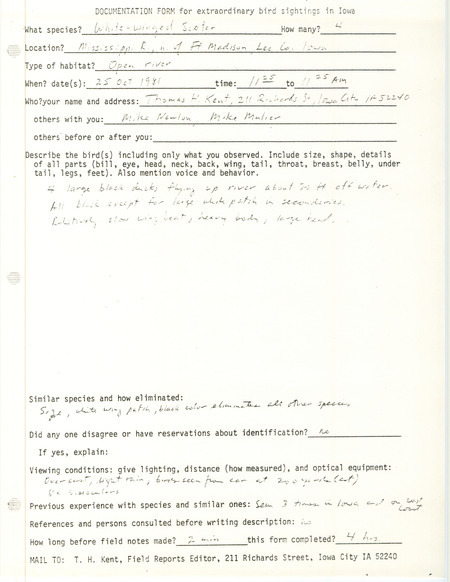 DOCUMENTATION FORM for extraordinary bird sightings in Iowa
What species? White-winged Scoter How many? 4
Location? Mississippi R., n. of Ft Madison, Lee Co. Iowa
Type of habitat? Open river
When? date(s): 25 Oct 1981 time: 11 25 to 11 25 AM
Who?your name and address: Thomas H Kent, 211 Richards St, Iowa City IA 52240
others with you: Mike Newlon, Mike
others before or after you:
Describe the bird(s) including only what you observed. Include size, shape, details
of all parts (bill, eye, head, neck, back, wing, tail, throat, breast, belly, under
tail, legs, feet). Also mention voice and behavior.
4 large black ducks flying up river about 20 ft off water.
All black except for large white patch in secondaries.
Relatively slow wing beat, heavy body, large head.
Similar species and how eliminated:
Size, white wing patch, black color eliminates all other species
Did any one disagree or have reservations about identification? no
If yes, explain:
Viewing conditions: give lighting, distance (how measured), and optical equipment:
Overcast, light rain, birds seen from car at 200 yards (est)
binoculars
Previous experience with species and similar ones: Seen 3 times in Iowa and on west
coast
References and persons consulted before writing description: no
How long before field notes made? 2 min this form completed? 4 hrs
MAIL TO: T. H. Kent, Field Reports Editor, 211 Richards Street, Iowa City IA 52240